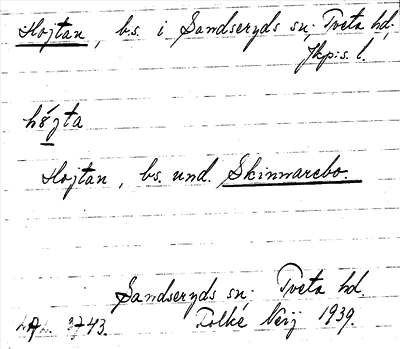 Hojtan, bs. i Sandseryds sn; Tveta hd;
Jkps. l.
hǿjta
Hojtan, bs. und. Skinnarebo.
Sandseryds sn; Tveta hd.
3743. Rolke Nerij 1939.